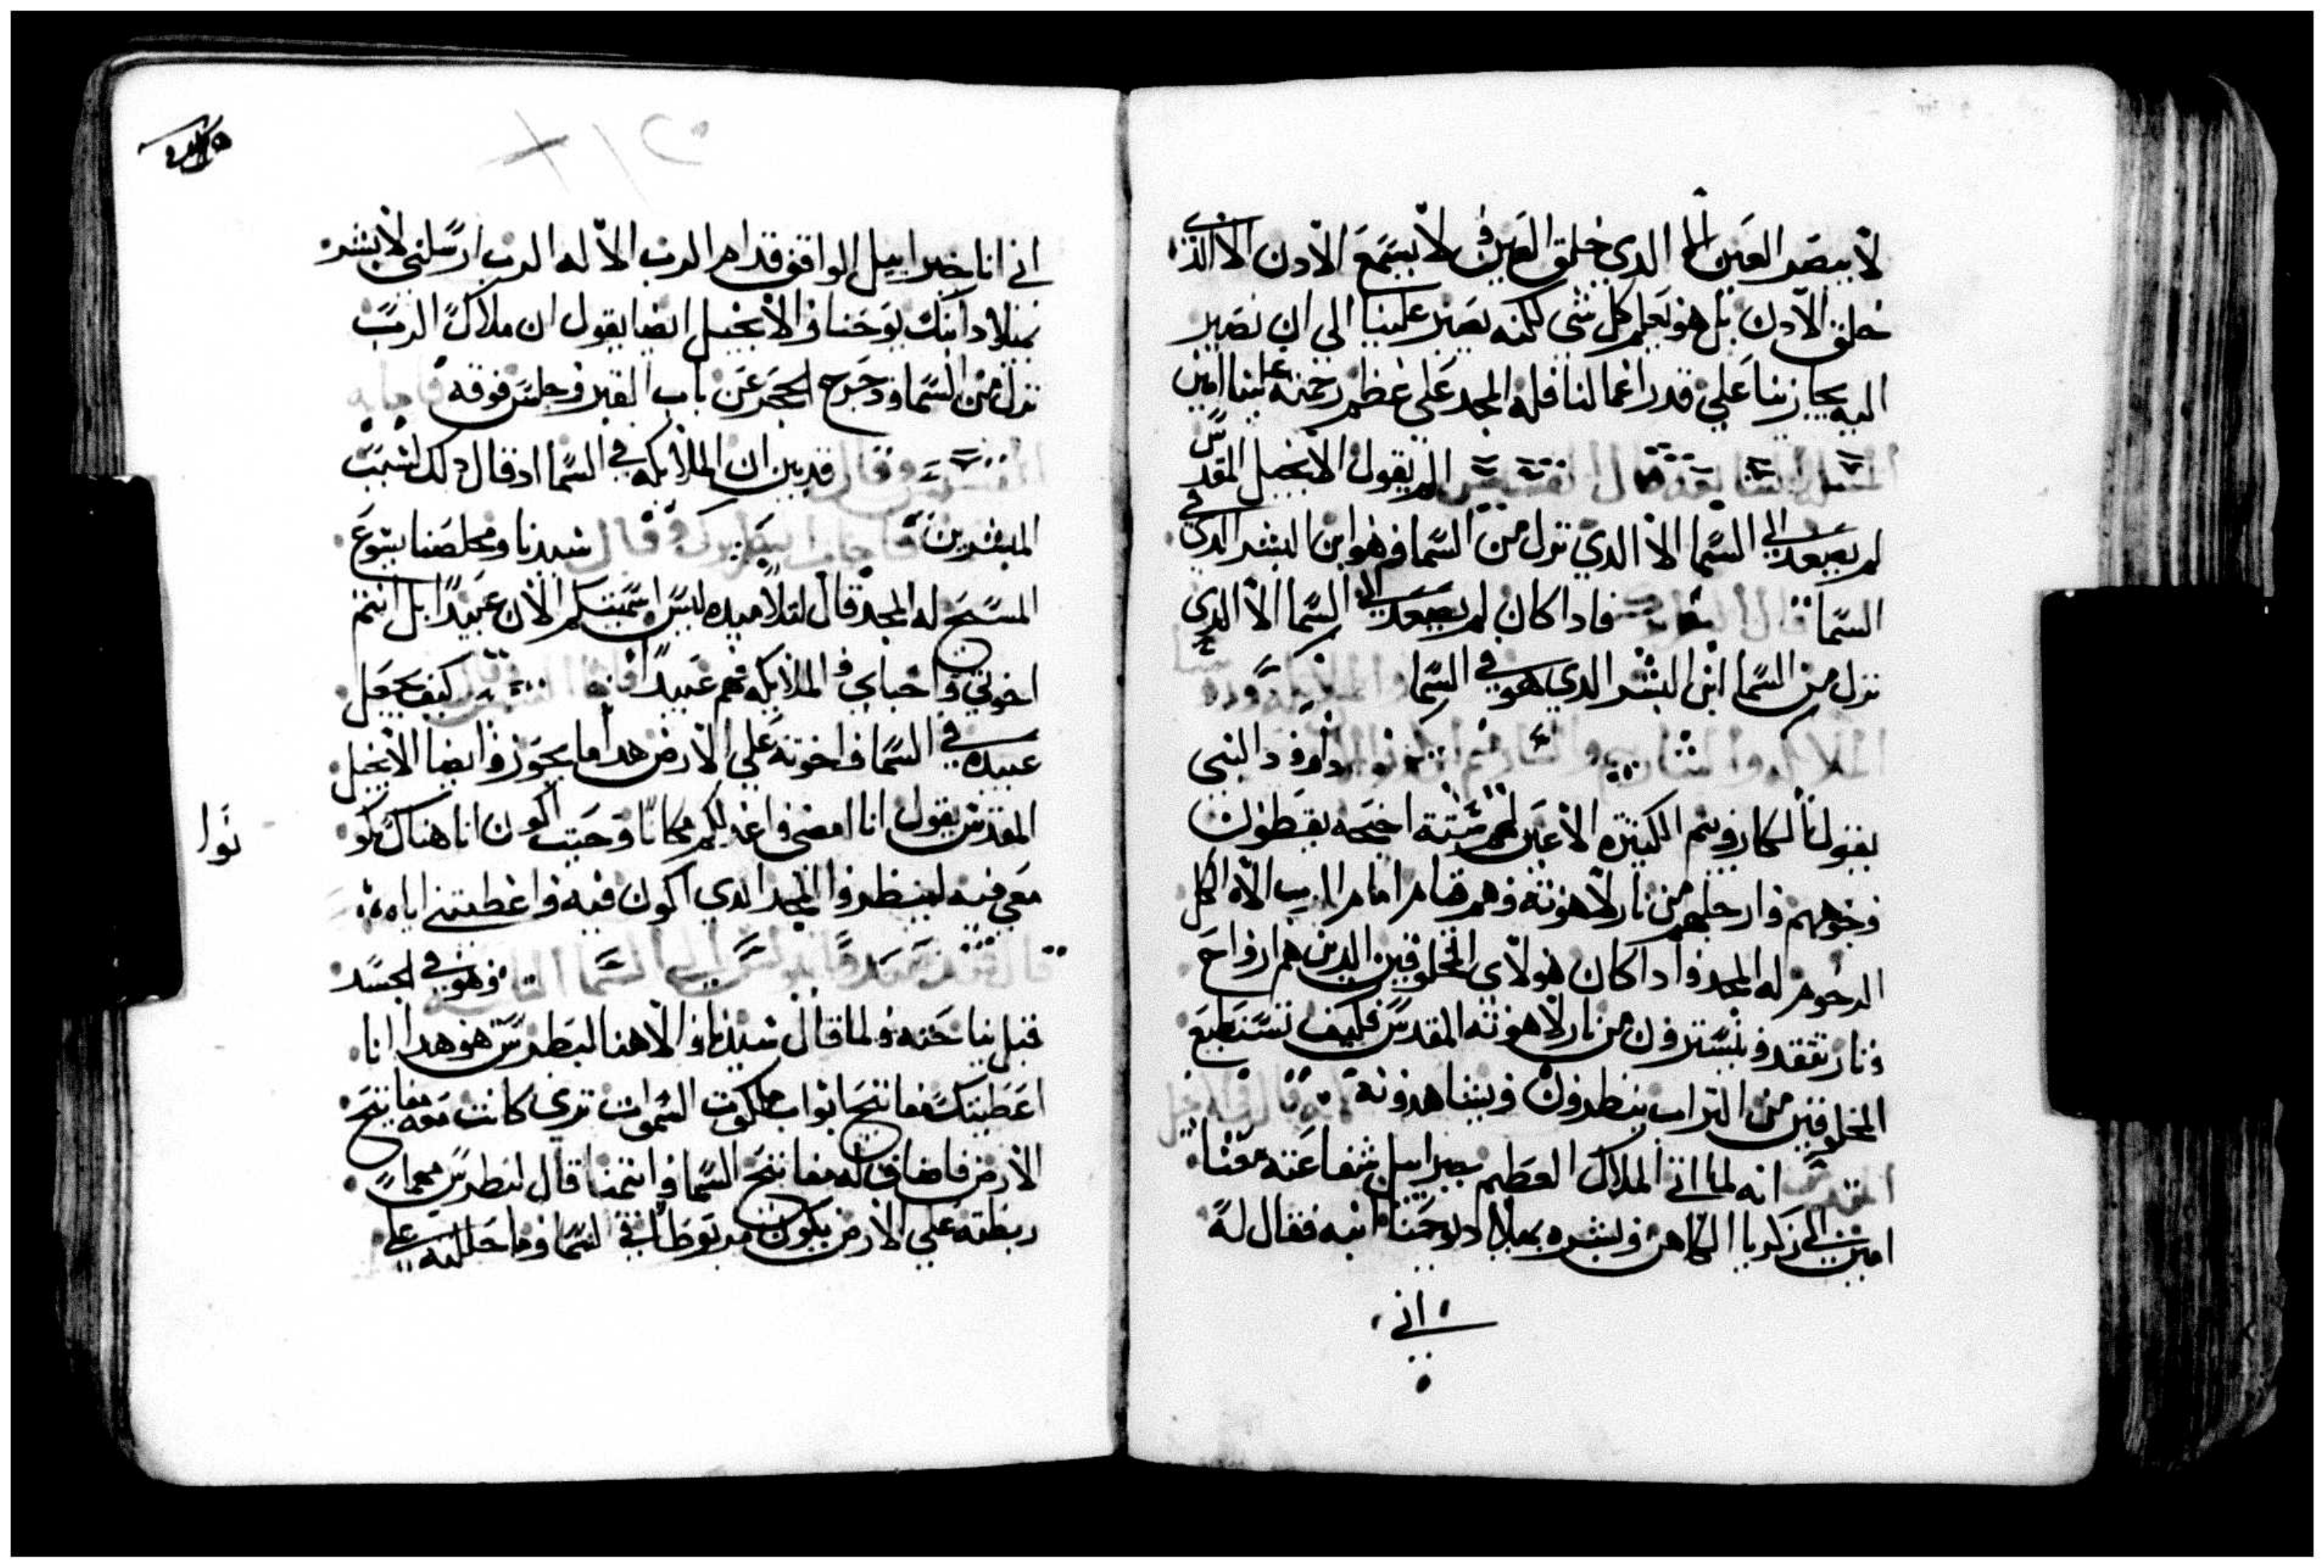 لا يبصر العين الا الدي خلق العين و لا يسمع الادن الا الذي
خلق الادن بل هو يعلم كل شي لكنه يصبر علينا الي ان نصير
اليه يجازينا علي قدر اعمالنا فله المجد علي عظم رحمته علينا امين
الم يقول الانجيل المقدس
لم يصعد الي السما الا الدي نزل من السما وهو ابن البشر الدي في
السما فادا كان لم يصعد الي السما الا الدي
نزل من السما ابن البشر الدي هو في السما
داوود النبي
يقول الكاروبيم الكتيره الاعين لهم ستة اجنحه يغطون
وجوههم وارجلهم من نار لاهوته وهم قيام امام الرب الاه الكل
المرحوم له المجد وادا كان هولاي المخلوقين الدين هم ارواح
ونار تتقد ويستترون من نار لاهوته المقدس فكيف نستطيع
المخلوقين من التراب ينظرون ويشاهدونه
انه لما اتي الملاك العظيم جبراييل شفاعته معنا
امين الي زكريا الكاهن وبشره بميلاد يوحنا ابنه فقال له
اني
اني انا جبراييل الواقف قدام الرب الاله الرب ارسلني لابشر
بميلاد ابنك يوحنا و الانجيل ايضا يقول ان ملاك الرب
نزل من السما ودحرج الحجر عن باب القبر وجلس فوقه
قد بين ان الملايكه في السما اد قال دلك لسبب
المبشرين وقال سيدنا ومخلصنا يسوع
المسيح له المجد قال لتلاميده ليس اسميتكم الان عبيدا بل انتم
اخوتي و احباي و الملايكه هم عبيدا كيف يجعل
عبيده في السما واخوته علي الارض هدا ما يجوز وايضا الانجيل
المقدس يقول انا امضي و اعد لكم مكانا وحيت اكون انا هناك تكو
نوا
معي فيه لينظروا المجد الدي اكون فيه و اعطيتني اياه
وهو في الجسد
قبل نياحته ولما قال سيدنا و الاهنا لبطرس هو هدا انا
اعطيتك مفاتيح ابواب ملكوت السموات تري كانت معه مفاتيح
الارض فاضاف له مفاتيح السما و ايتمنا قال لبطرس مهما
ربطته علي الارض يكون مربوطا في السما وما حللته علي